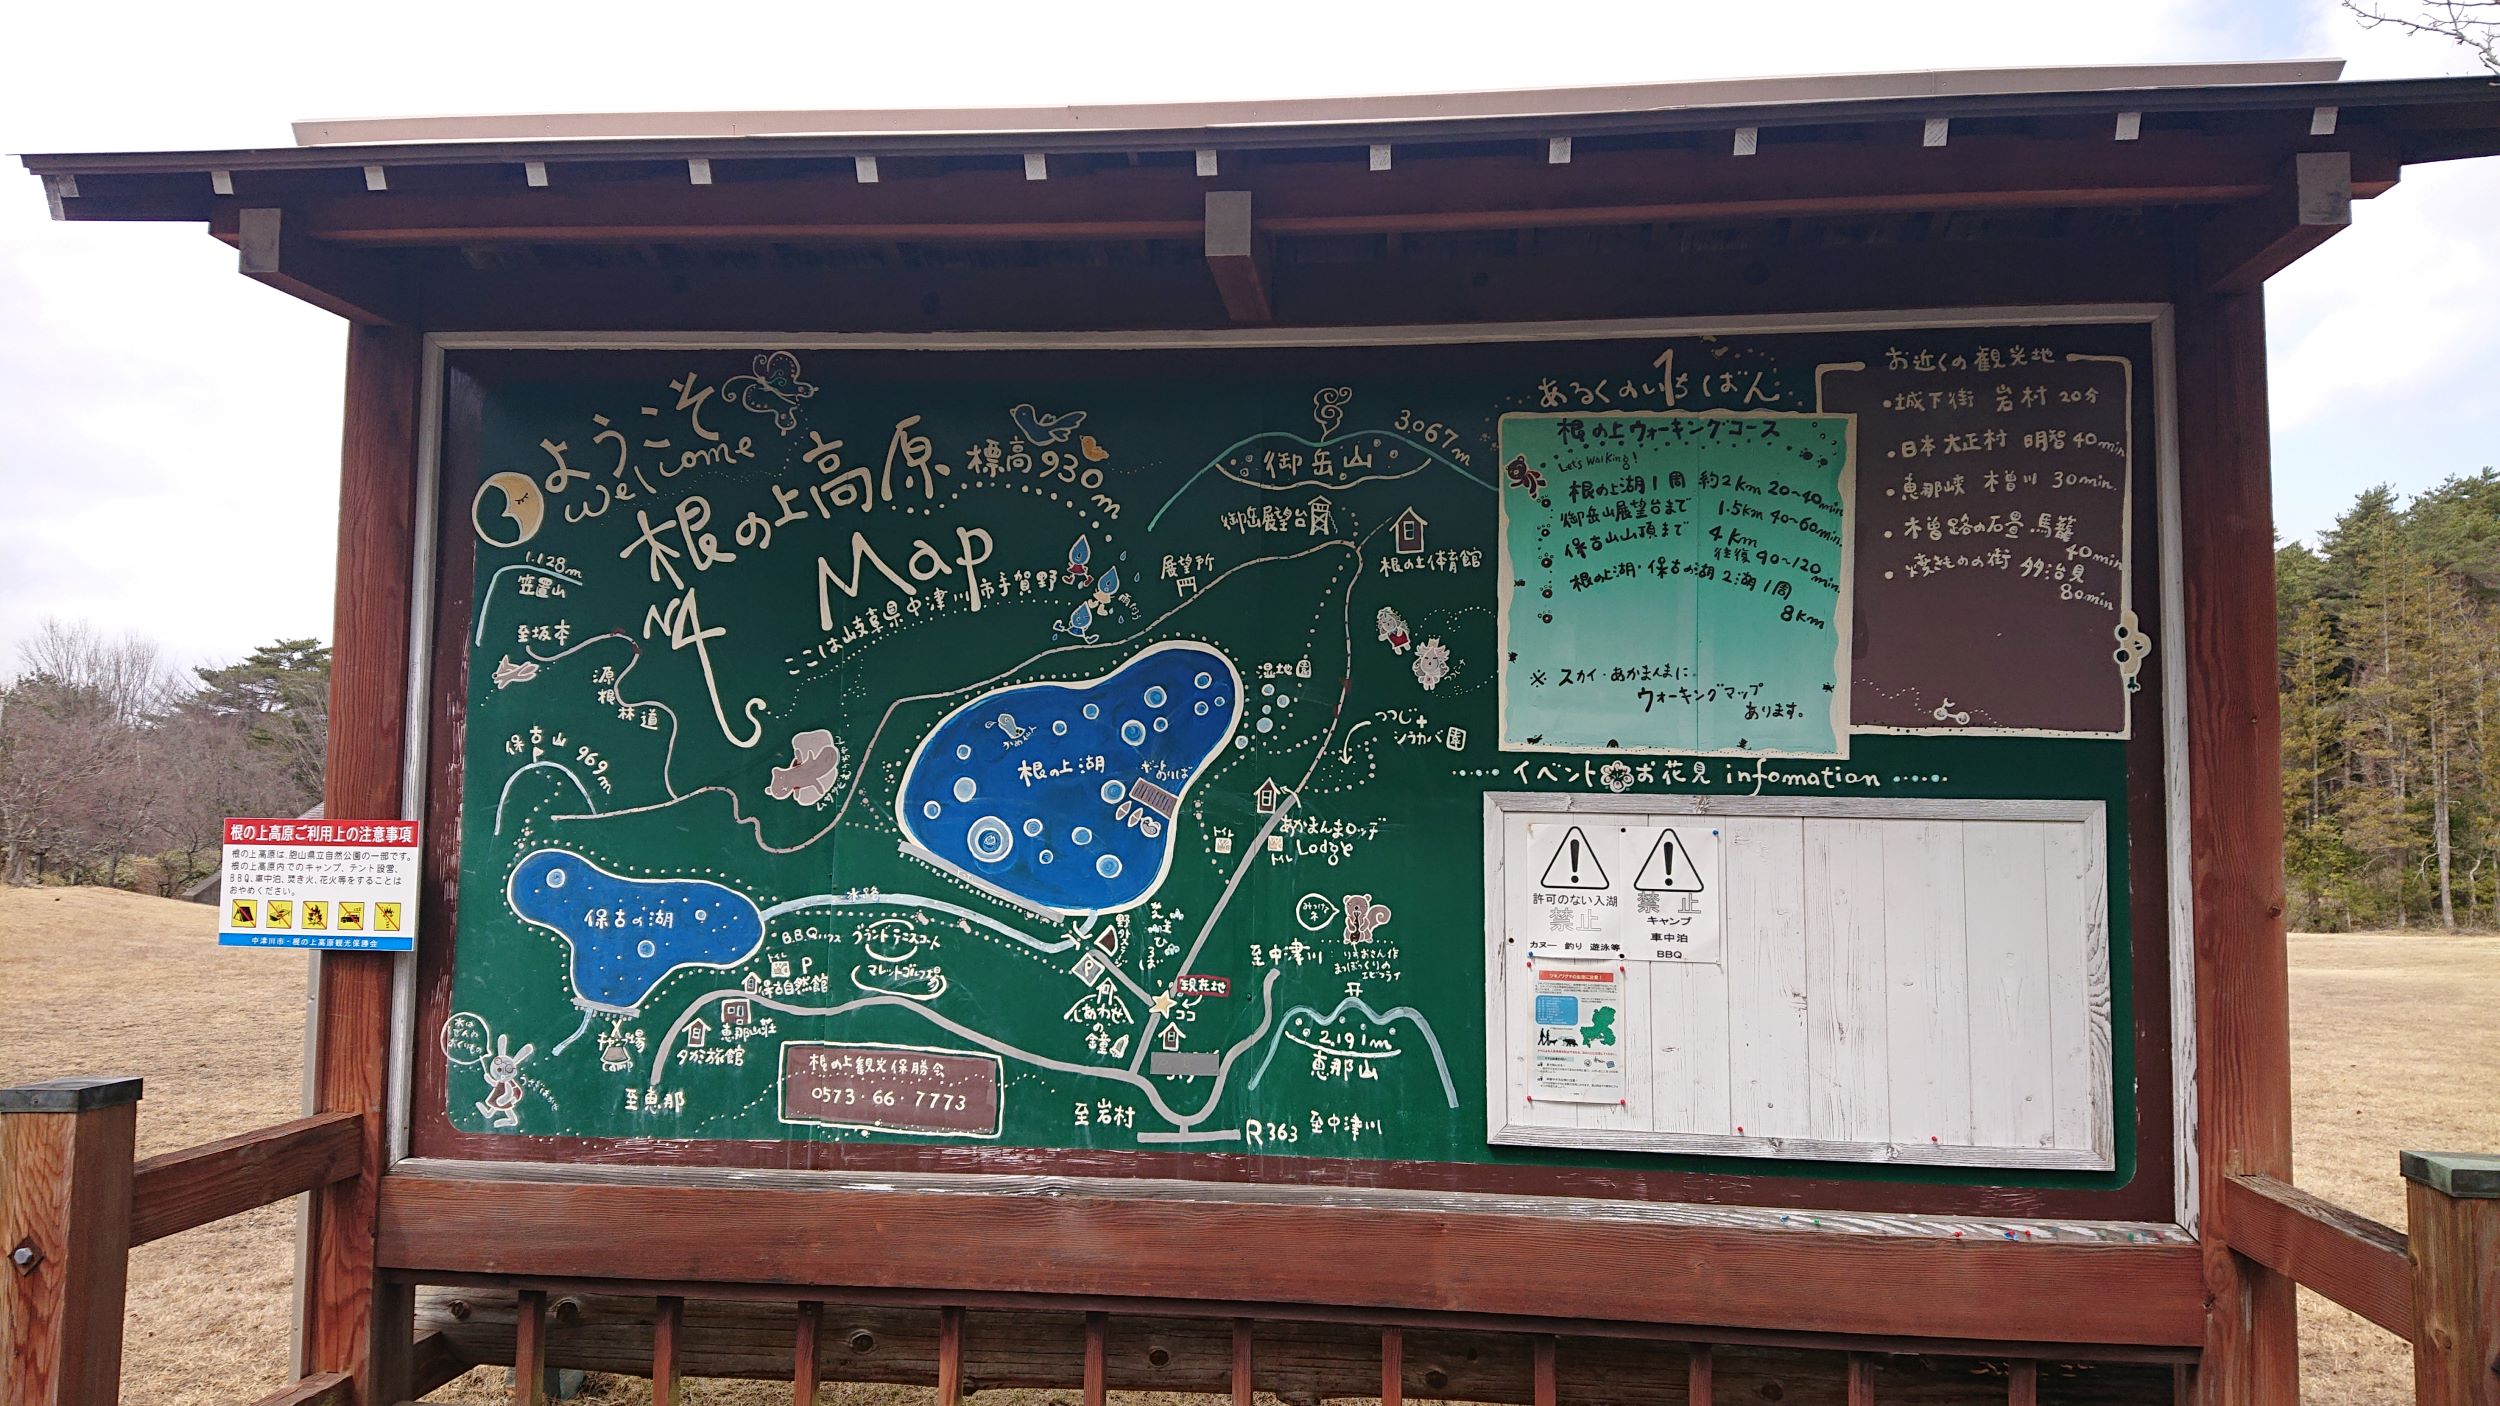 ようこそ
Welcome
根の上高原
Map
標高930m
ここは岐阜県中津川市手賀野
N4
1.128m
笠置山
至坂本
源根林道
保古山 969m
御岳山
3.067m
御岳展望台
展望所
根の上体育館
湿地園
つつじ+
シラカバ園
根の上湖
ボートのりば
あかまんまロッヂ
Lodge
トイレ
トイレ
保古の湖
水路
B.B.Qハウス
グランド テニスコート
マレットゴルフ場
トイレ P
保古自然館
恵那山荘
タガミ旅館
キャンプ場
camp
至恵那
野外ステージ
P
しあわせの鐘
現在地
ココ
みっけてネ
りすおさん作
まつぼっくりの
エビフライ
至中津川
2.191m
恵那山
根の上観光保勝会
0573・66・7773
至岩村
R363 至中津川
あるくのいちばん
根の上ウォーキングコース
Let's Walking!
根の上湖1周 約2km 20~40min.
御岳山展望台まで 1.5km 40~60min.
保古山山頂まで 4km
往復 90~120min.
根の上湖・保古の湖 2湖1周
8km
※スカイ・あかまんまに
ウォーキングマップ
あります。
お近くの観光地
・城下街 岩村 20分
・日本大正村 明智 40min
・恵那峡 木曽川 30min.
・木曽路の石畳 馬籠
40min
・焼きものの街 多治見
80min
イベント お花見 infomation
許可のない入湖
禁止
カヌー 釣り 遊泳等
禁止
キャンプ
車中泊
BBQ
根の上高原ご利用上の注意事項
根の上高原は、胞山県立自然公園の一部です。
根の上高原内でのキャンプ、テント設営、
BBQ、車中泊、焚き火、花火等をすることは
おやめください。
中津川市・根の上高原観光保勝会